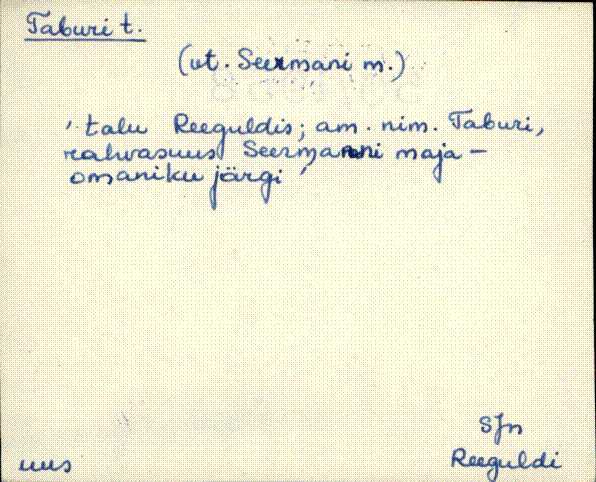 Taburi t.
(vt. Seermani m.)
' talu Reeguldis; am. nim. Taburi,
rahvasuus Seermanni maja -
omaniku järgi '
SJn
uus Reeguldi